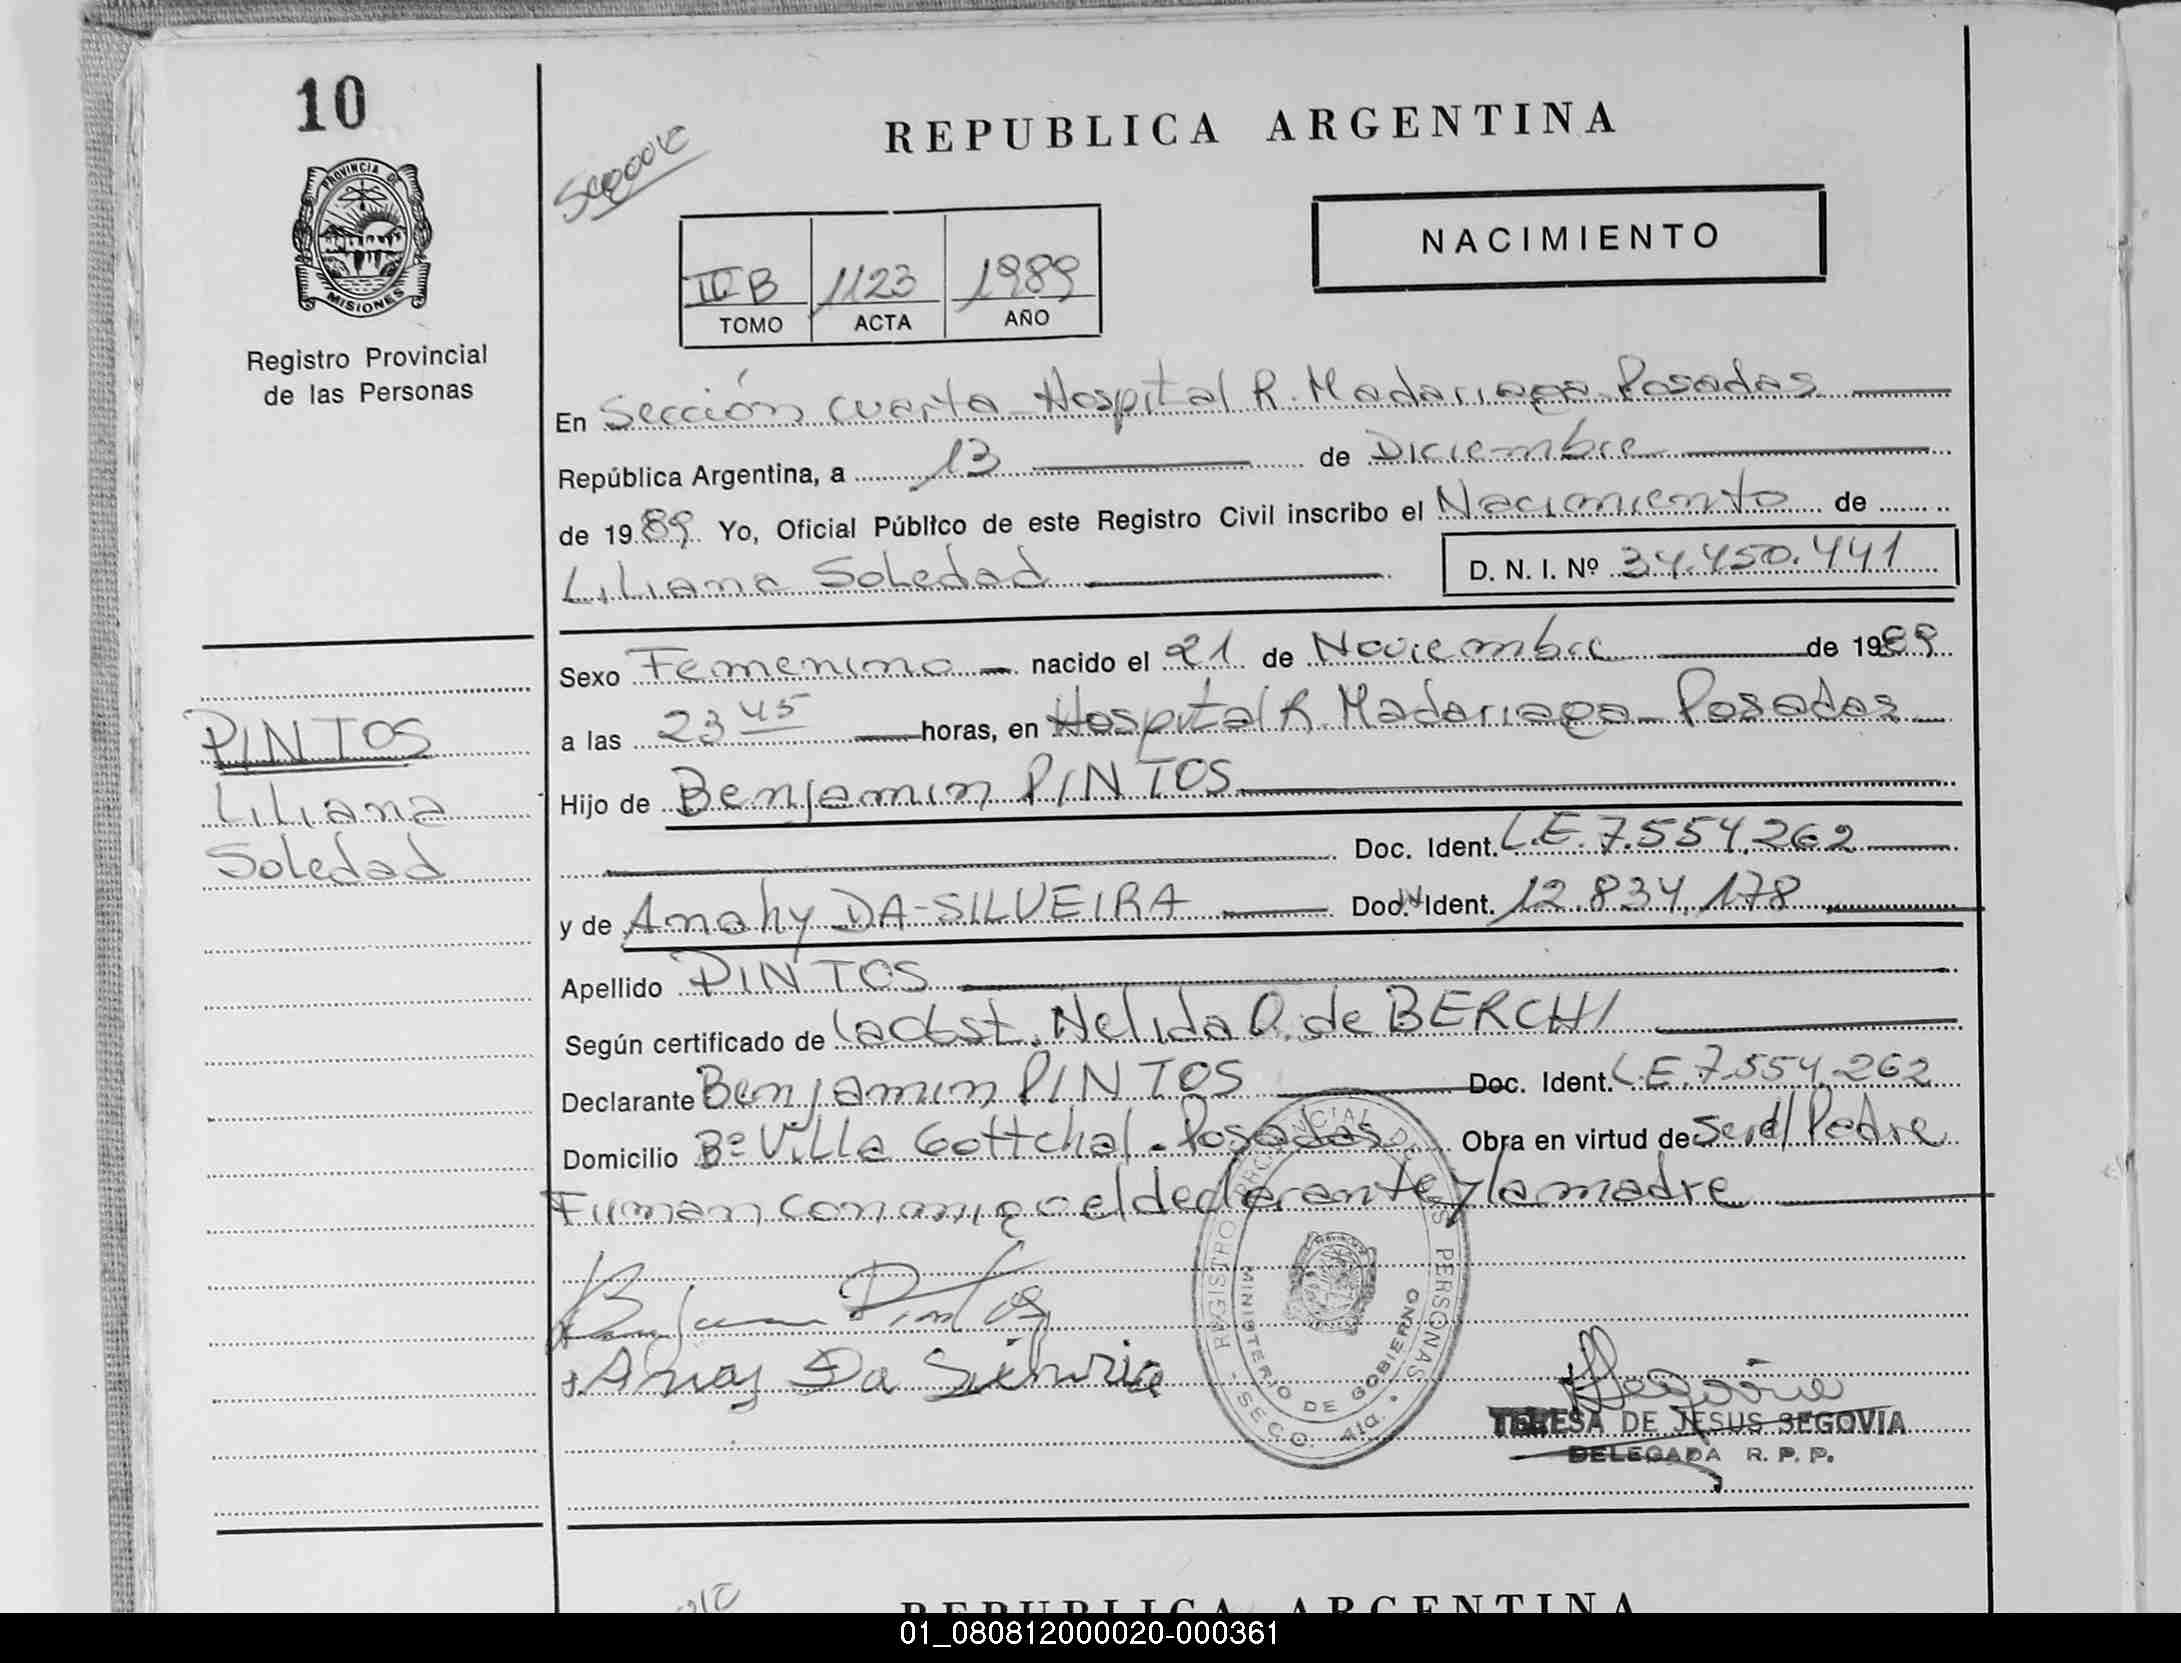 10
PROVINCIA DE
MISIONES
Registro Provincial
de las Personas
REPUBLICA ARGENTINA
NACIMIENTO
III B 1123 1989
TOMO ACTA AÑO
En Sección cuarta Hospital R. Madariaga Posadas
República Argentina, a 13 de Diciembre
de 1989 Yo, Oficial Público de este Registro Civil inscribo el Nacimiento de
Liliana Soledad D. N. I. Nº 34.450.441
Sexo Femenino nacido el 21 de Noviembre de 1989
a las 23 45 horas, en Hospital R. Madariaga Posadas
Hijo de Benjamin PINTOS
Doc. Ident. L.E. 7.554.262
y de Anahy DA-SILVEIRA Doc. Ident. 12.834.178
Apellido PINTOS
Según certificado de la Obst. Nelida O. de BERCHI
Declarante Benjamin PINTOS Doc. Ident. L.E. 7.554.262
Domicilio Bº Villa Gottchal - Posadas Obra en virtud de ser el Padre
Firman conmigo el declarante y la madre
PINTOS
Liliana
Soledad
Pintos
Da
REGISTRO PROVINCIAL DE LAS PERSONAS
MINISTERIO DE GOBIERNO
SEC.
TERESA DE JESUS SEGOVIA
DELEGADA R. P. P.
REPUBLICA ARGENTINA
01_080812000020-000361